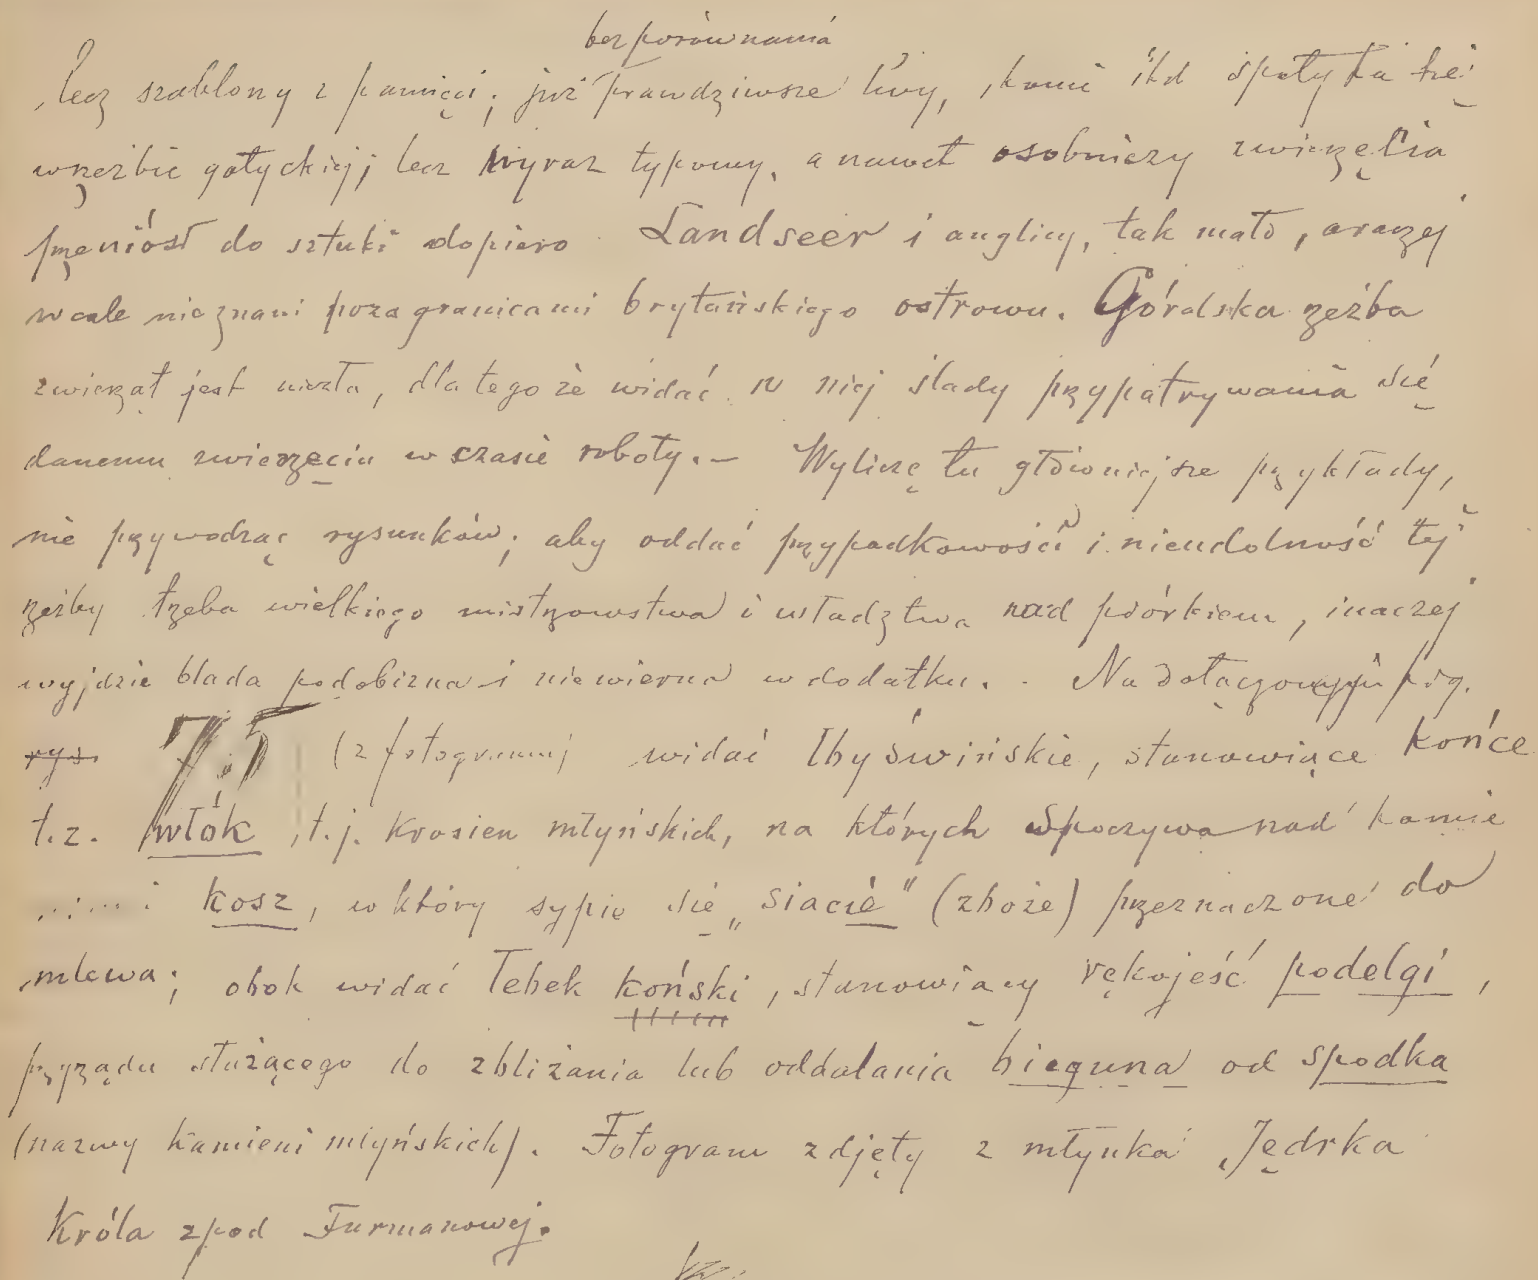 bez porównania
lecz szablony z pamięci; już prawdziwsze lwy, jkami ikd spotyka się
w rzeźbie gotyckiej; lecz wyraz typowy, a nawet osobniczy zwierzęcia
przeniósł do sztuki dopiero Landseer i anglicy, tak mało, a raczej
wcale nieznani poza granicami brytańskiego ostrowu. Góralska rzeźba
zwierząt jest niezła, dlatego że widać w niej ślady przypatrywania się
danemu zwierzęciu w czasie roboty.— Wyliczę tu główniejsze przykłady,
nie przywodząc rysunków; aby oddać przypadkowość i nieudolność tej
rzeźby trzeba wielkiego mistrzowstwa i władztwa nad piórkiem, inaczej
wyjdzie blada podobizna i niewierna w dodatku. - Na dołączonym fig.
rys 75 (z fotogramu) widać łby świńskie, stanowiące końce
t.z. włók, t.j. krosien młyńskich, na których spoczywa nad kamie
i kosz, w który sypie się „siacie" (zboże) przeznaczone do
mlewa; obok widać łebek koński, stanowiący rękojeść podelgi,
przyrządu służącego do zbliżania lub oddalania bieguna od spodka
(nazwy kamieni młyńskich). Fotogram zdjęty z młynka Jędrka
Króla zpod Furmanowej.